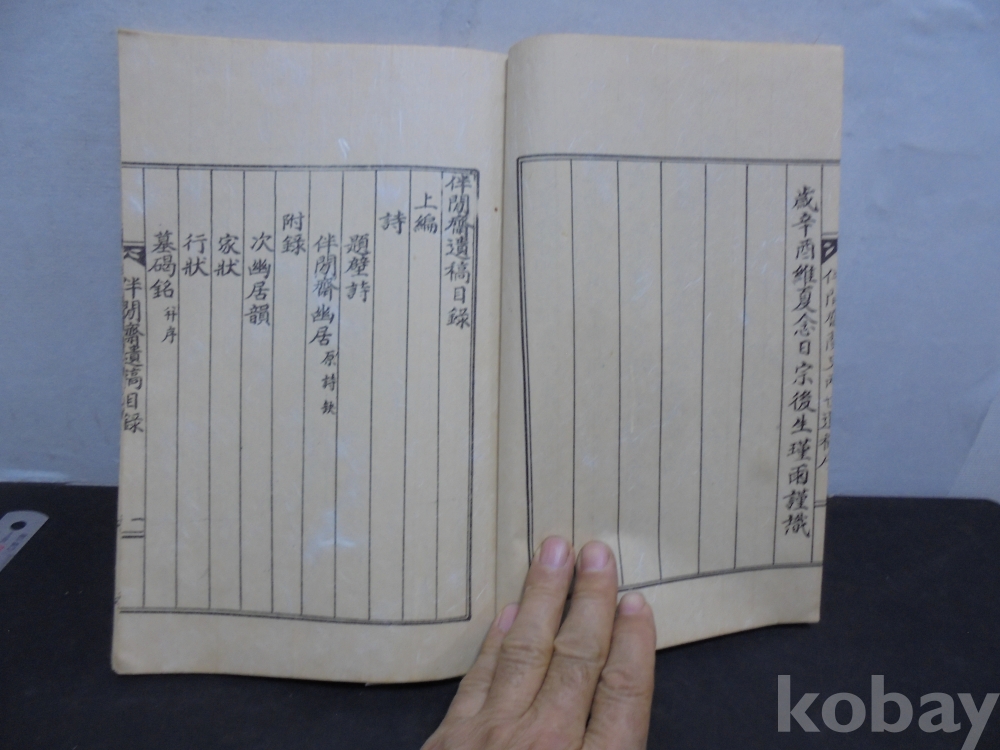 歲辛酉維夏念日宗後生瑾雨謹識
伴閒齋遺稿目錄
上編
詩
題壁詩
伴閒齋幽居 原詩缺
附錄
次幽居韻
家狀
行狀
墓碣銘 幷序
伴閒齋遺稿目錄
一
kobay